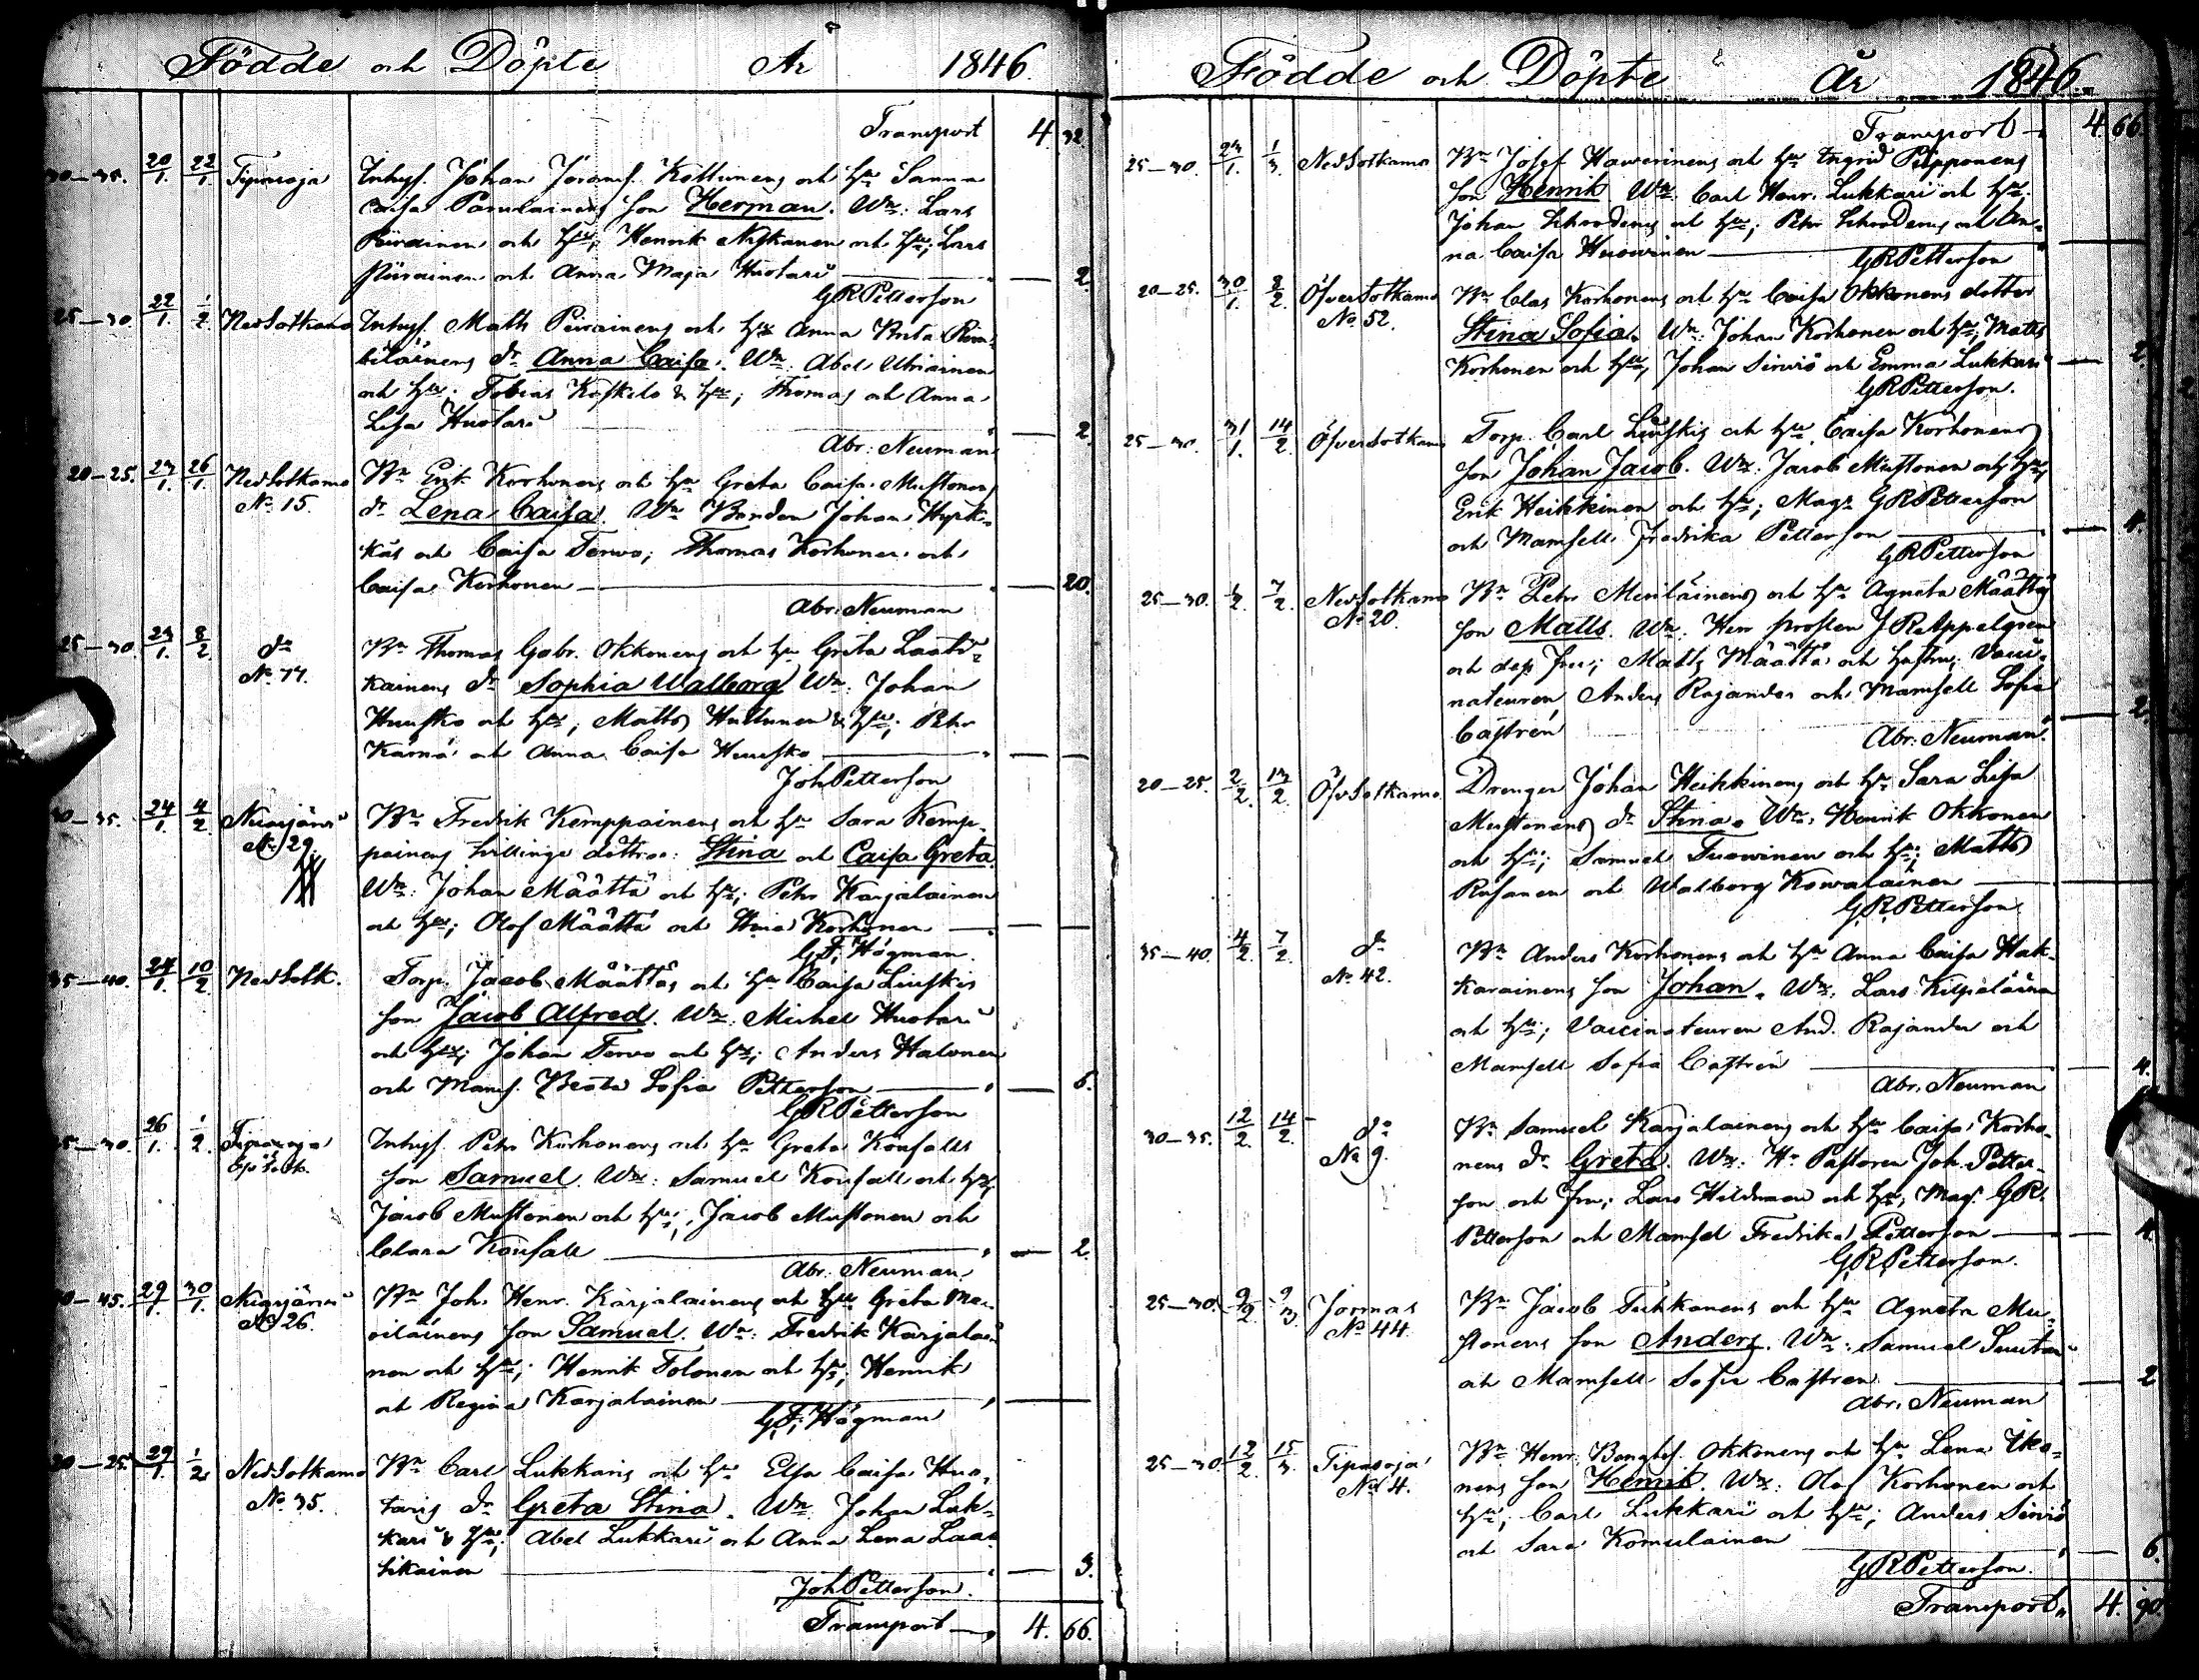 Födde och Döpte År 1846.
Transport 4 32
30–35. 20/1. 22/1. Tipasoja Inhys. Johan Kettunens och hu Sanna
Caisa son Herman. Wn: Lars
Piirainen och hu; Henrik Niskanen och hu; Lars
Piirainen och Anna Maja Huotari — 2.
GRPetterson
25–30. 22/1. 1/2. NedSotkamo Inhys. Matts Piirainens och hu Anna Brita
dr Anna Caisa. Wn: Abel
och hu; Tobias Koskelo & hu; Thomas och Anna
Lisa Huotari — 2.
Abr: Neuman
20–25. 23/1. 26/1. NedSotkamo Bn Erik Korhonens och hu Greta Caisa Mustonens
No 15. dr Lena Caisa. Wn Bonden Johan Hyrk-
käs och Caisa Tervo; Thomas Korhonen och
Caisa Korhonen — 20.
Abr: Neuman
25–30. 23/1. 8/2. do Bn Thomas Gabr. Okkonens och hu Greta Laati-
No 77. kainens dr Sophia Walborg Wn: Johan
Huusko och hu; Matts Huttunen & hu; Petr
Kärnä och Anna Caisa Huusko —
JohPetterson
30–35. 24/1. 4/2. Nuasjärvi Bn Fredrik Kemppainens och hu Sara Kemp-
No 29. painens tvillinge döttrar: Stina och Caisa Greta.
Wn: Johan Määttä och hu; Petr Karjalainen
och hu; Olof Määttä och Stina Korhonen —
G.F. Högman.
35–40. 24/1. 10/2. NedSotk. Torp. Jacob Määttäs och hu Caisa Liuskis
son Jacob Alfred. Wn: Michel Huotari
och hu; Johan Tervo och hu; Anders Halonen
och Mams. Beata Sofia Petterson — 6.
GRPetterson
25–30. 26/1. 1/2. Tipasoja Inhys. Petr Korhonens och hu Greta Konsalls
son Samuel. Wn: Samuel Konsall och hu;
Jacob Mustonen och hu; Jacob Mustonen och
Clara Konsall — 2.
Abr. Neuman.
40–45. 29/1. 30/1. Nuasjärvi Bn Joh. Henr. Karjalainens och hu Greta Me-
No 26. riläinens son Samuel. Wn: Fredrik Karjalai-
nen och hu; Henrik Tolonen och hu; Henrik
och Regina Karjalainen —
G.F. Högman
20–25. 29/1. 1/2. NedSotkamo Bn Carl Lukkaris och hu Elsa Caisa Huo-
No 35. taris dr Greta Stina. Wn Johan Luk-
kari & hu; Abel Lukkari och Anna Lena Laa-
tikainen — 3.
JohPetterson.
Transport — 4. 66.
Födde och Döpte År 1846.
Transport — 4. 66.
25–30. 23/1. 1/3. NedSotkamo Bn Josef Hawerinens och hu Ingrid Pipponens
son Henrik Wn: Carl Henr. Lukkari och hu;
Johan Schroderus och hu; Petr Schroderus och An-
na Caisa Huowinen —
GRPetterson
20–25. 30/1. 8/2. ÖfverSotkamo Bn Clas Korhonens och hu Caisa Okkonens dotter
No 52. Stina Sofia. Wn: Johan Korhonen och hu; Matts
Korhonen och hu; Johan Sirviö och Emma Lukkari — 2.
GRPetterson.
25–30. 31/1. 14/2. ÖfverSotkamo Torp. Carl Liuskis och hu Caisa Korhonens
son Johan Jacob. Wn: Jacob Mustonen och hu;
Erik Heikkinen och hu; Magr GRPetterson
och Mamsell Fredrika Petterson — 4.
GRPetterson
25–30. 1/2. 7/2. NedSotkamo Bn Petr Meriläinens och hu Agneta Määttäs
No 20. son Matts. Wn: Herr Prosten J R Appelgren
och dess fru; Matts Määttä och hustru; Vacci-
nateuren Anders Rajander och Mamsell Sofia
Castrén — 2.
Abr: Neuman.
20–25. 2/2. 13/2. ÖfvSotkamo. Drengen Johan Heikkinens och hu Sara Lisa
Mustonens dr Stina. Wn: Henrik Okkonen
och hu; Samuel Tuowinen och hu; Matts
Rusanen och Walborg Kowalainen —
GRPetterson
35–40. 4/2. 7/2. do Bn Anders Korhonens och hu Anna Caisa Hak-
No 42. karainens son Johan. Wn: Lars Kilpeläinen
och hu; Vaccinateuren And. Rajander och
Mamsell Sofia Castrén — 4.
Abr. Neuman
30–35. 12/2. 14/2. do Bn Samuel Karjalainens och hu Caisa Korho-
No 9. nens dr Greta. Wn: Hr Pastoren Joh. Petter-
son och fru; Lars Heldman och hu; Mag. GR
Petterson och Mamsel Fredrika Petterson — 4.
GRPetterson.
25–30. 9/2. 9/3. Jormas Bn Jacob Tuhkanens och hu Agneta Mu-
No 44. stonens son Anders. Wn: Samuel Suutari
och Mamsell Sofia Castrén — 2
Abr. Neuman
25–30. 12/2. 15/3. Tipasoja Bn Henr. Bengts. Okkonens och hu Lena Iko-
No 4. nens son Henrik. Wn: Olof Korhonen och
hu; Carl Lukkari och hu; Anders Sirviö
och Sara Komulainen — 6.
GRPetterson.
Transport 4. 90.